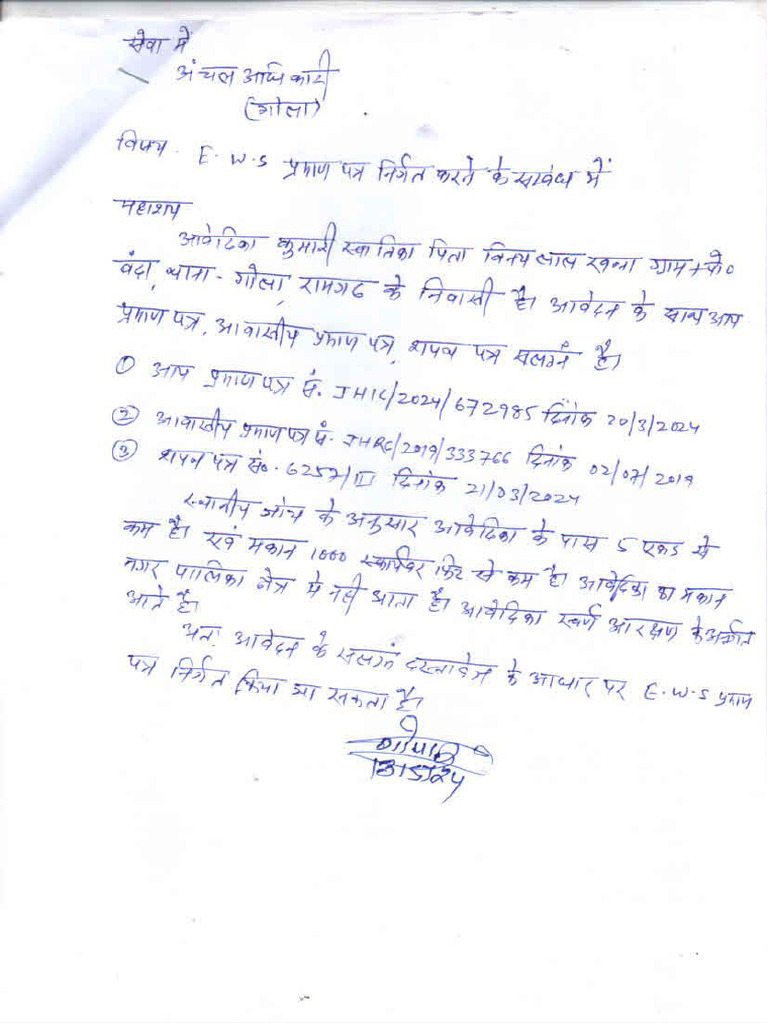 सेवा में
अंचल अधिकारी
(गोला)
विषय - E.W.S प्रमाण पत्र निर्गत करने के सबंध में
महाशय
आवेदिका कुमारी स्वातिका पिता विनय लाल खन्ना ग्राम + पो०
बंदा, थाना - गोला, रामगढ के निवासी है। आवेदन के साथ आय
प्रमाण पत्र, आवासीय प्रमाण पत्र, शपथ पत्र सलग्नं है।
① आय प्रमाण पत्र सं. JHIC/2024/672985 दिनांक 20/3/2024
② आवासीय प्रमाण पत्र सं. JHRC/2019/333766 दिनांक 02/07/2019
③ शपथ पत्र सं० 6257/III दिनांक 21/03/2024
स्थानीय जांच के अनुसार आवेदिका के पास 5 एकड से
कम है। एवं मकान 1000 स्कायर फिट से कम है। आवेदिका का मकान
नगर पालिका क्षेत्र में नही आता है। आवेदिका स्वर्ण आरक्षण के अर्न्तगत
आते है।
अतः आवेदन के सलग्नं दस्तावेज के आधार पर E.W.S प्रमाण
पत्र निर्गत किया जा सकता है।